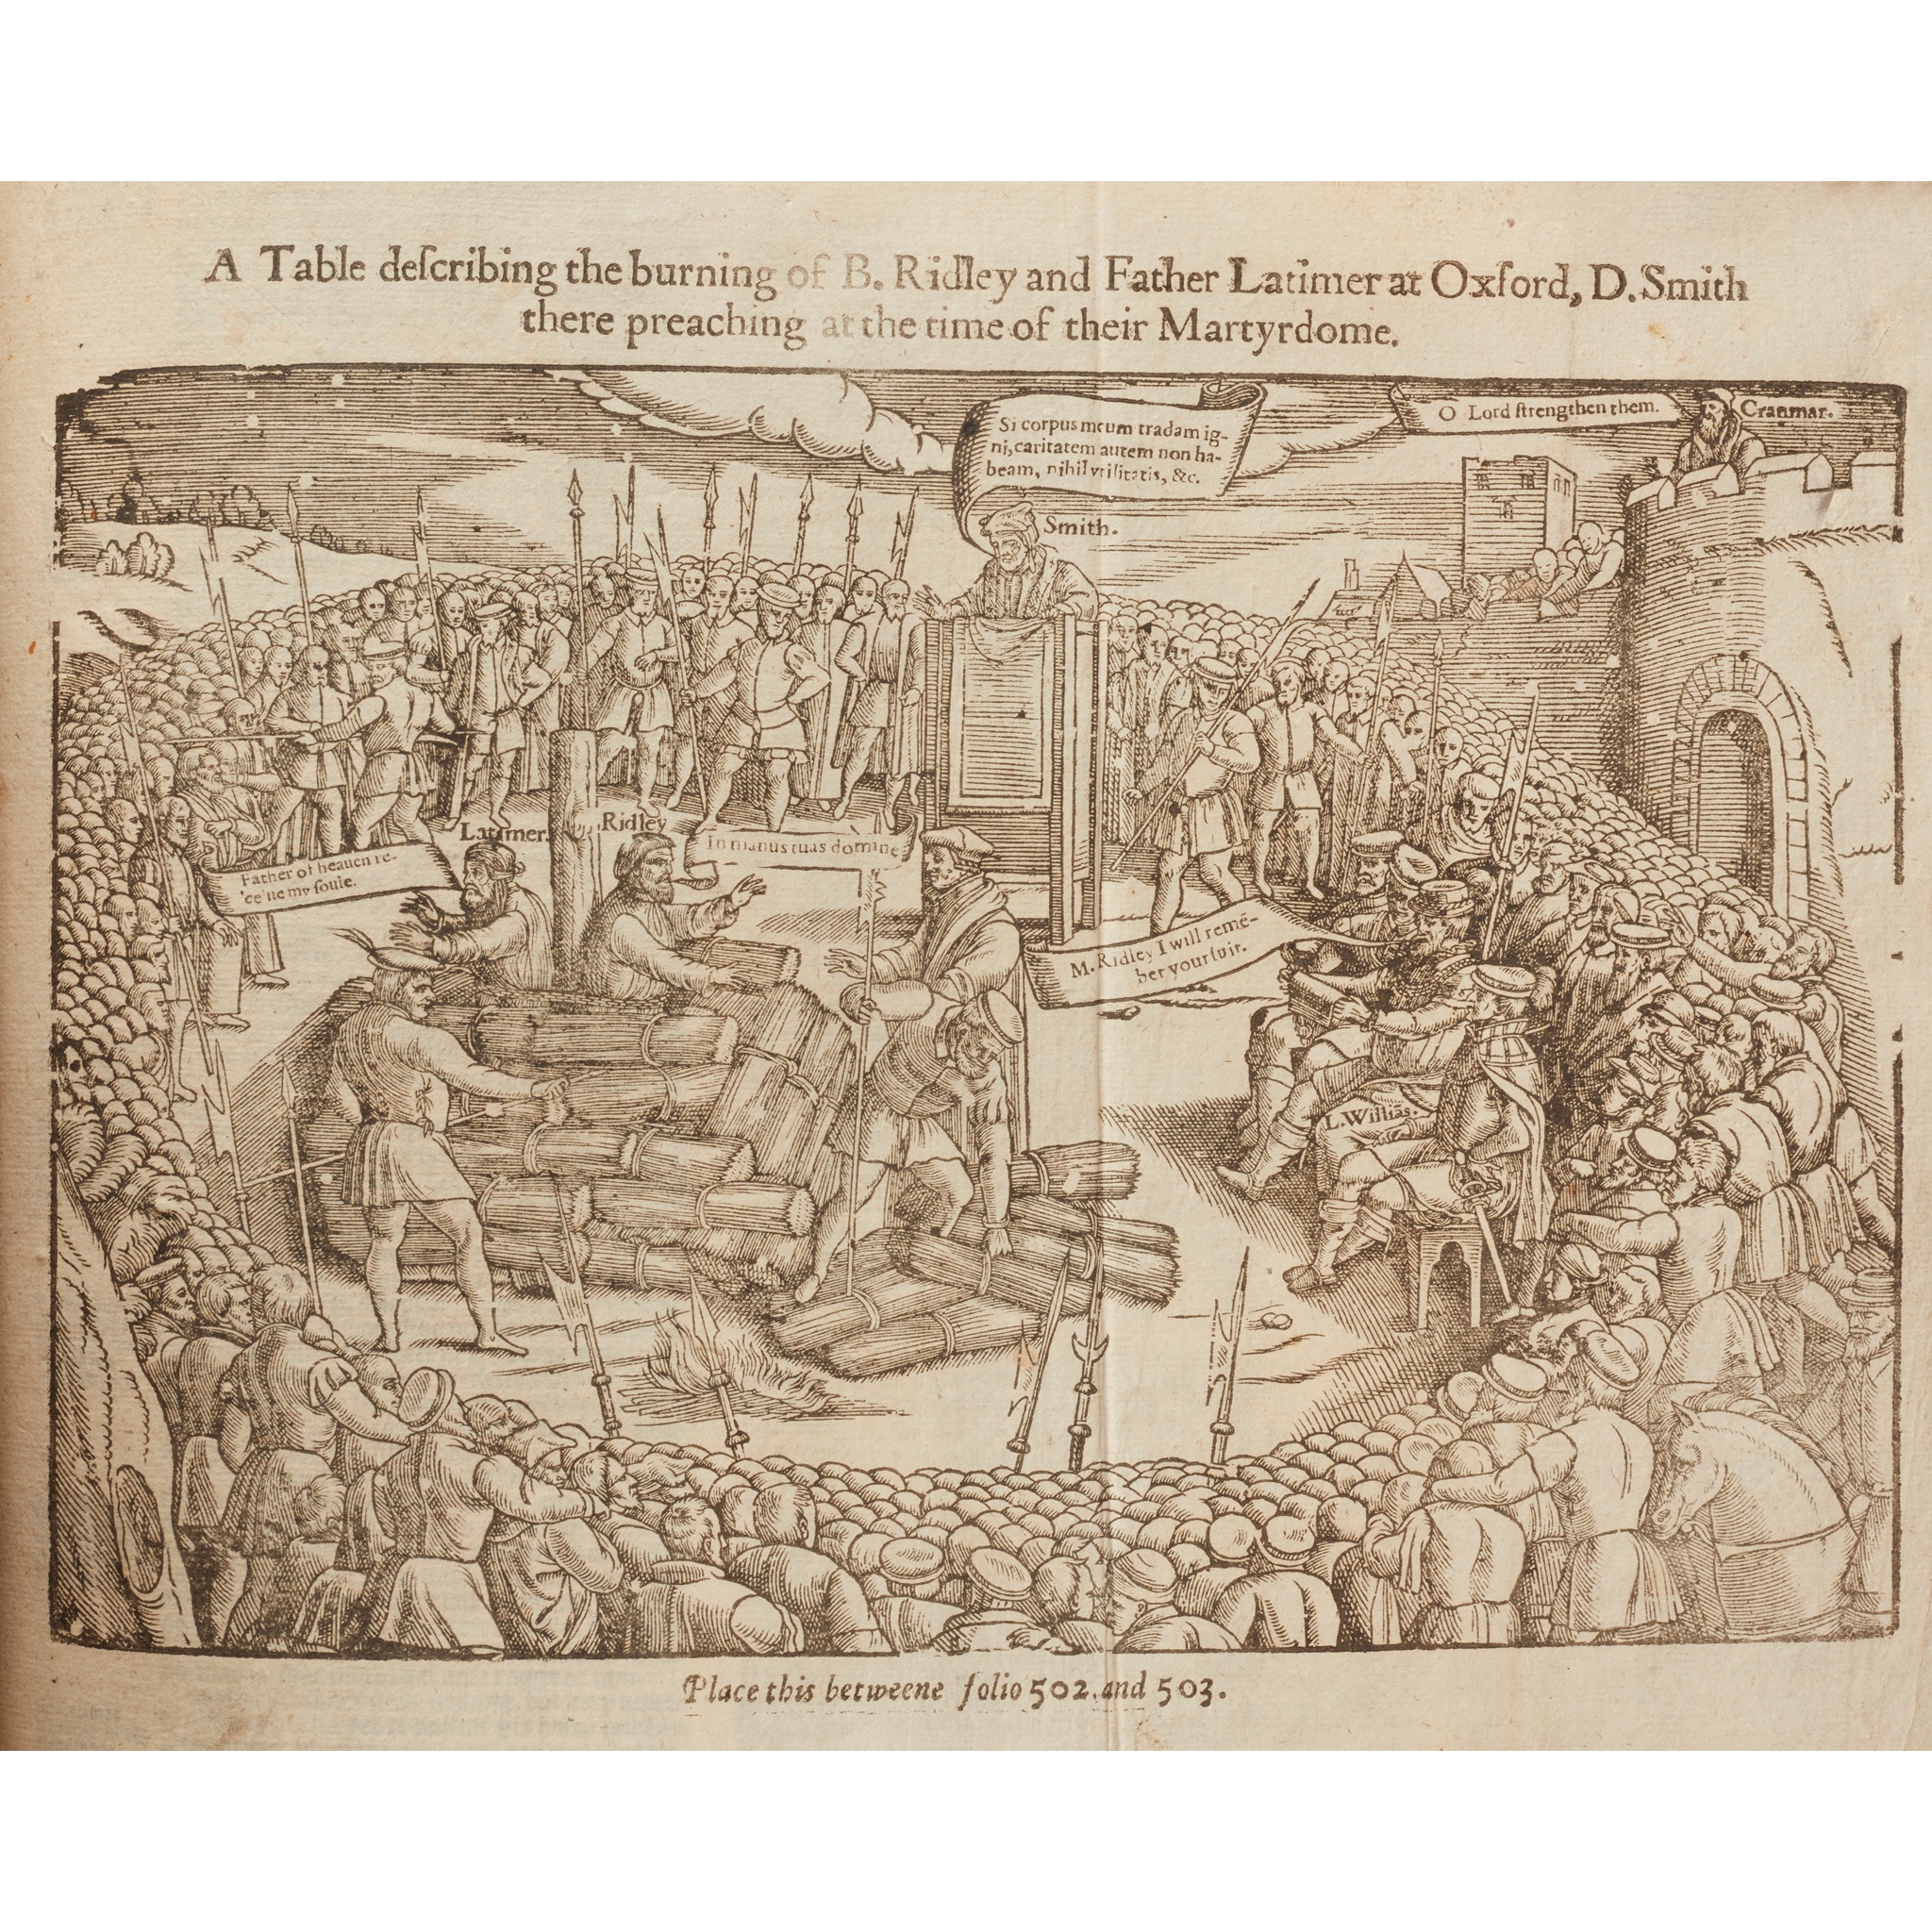 A Table deſcribing the burning of B. Ridley and Father Latimer at Oxford, D. Smith
there preaching at the time of their Martyrdome.
Si corpus meum tradam ig-
ni, caritatem autem non ha-
beam, nihil vtilitatis, &c.
O Lord ſtrengthen them.
Cranmar.
Smith.
Latimer.
Ridley
In manus tuas domine
Father of heauen re-
ceiue my ſoule.
M. Ridley I will remē-
ber your ſuit.
L. Williās.
Place this betweene folio 502. and 503.